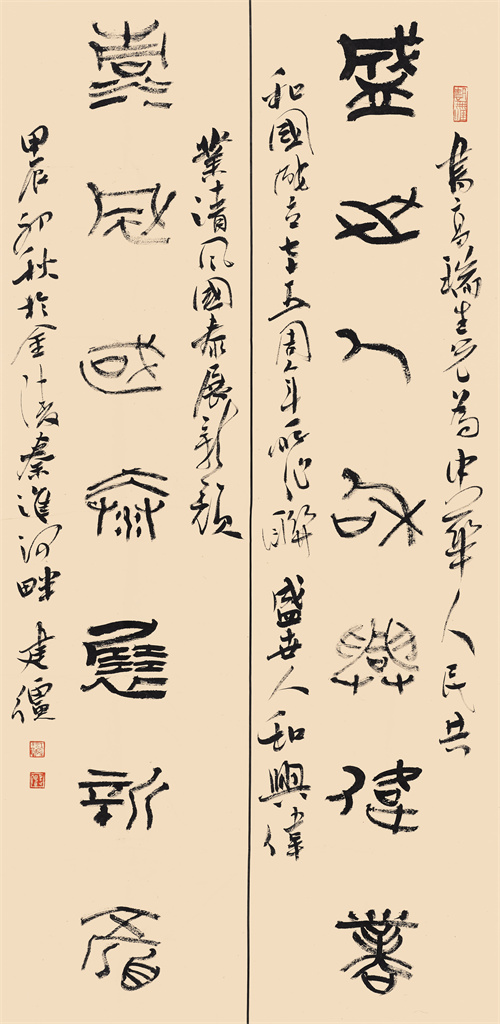 書高瑞生兄為中華人民共
盛世人和興偉業
和國成立七十五周年所作聯 盛世人和興偉
業清風國泰展新顏
清風國泰展新顏
甲辰初秋於金陵秦淮河畔 建疆